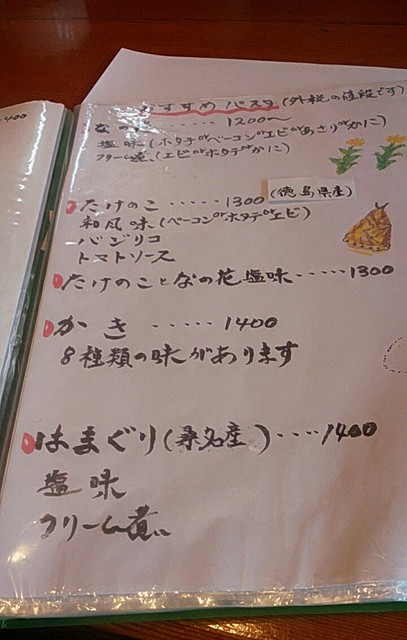 400
おすすめパスタ(外税の値段です)
なの花 ‥‥‥ 1200〜
塩味(ホタテorベーコンorエビorあさりorかに)
クリーム煮(エビorホタテorかに)
たけのこ ‥‥‥ 1300 (徳島県産)
和風味(ベーコンorホタテorエビ)
バジリコ
トマトソース
たけのことなの花塩味‥‥‥1300
かき ‥‥‥ 1400
8種類の味があります
はまぐり(桑名産)‥‥1400
塩味
クリーム煮